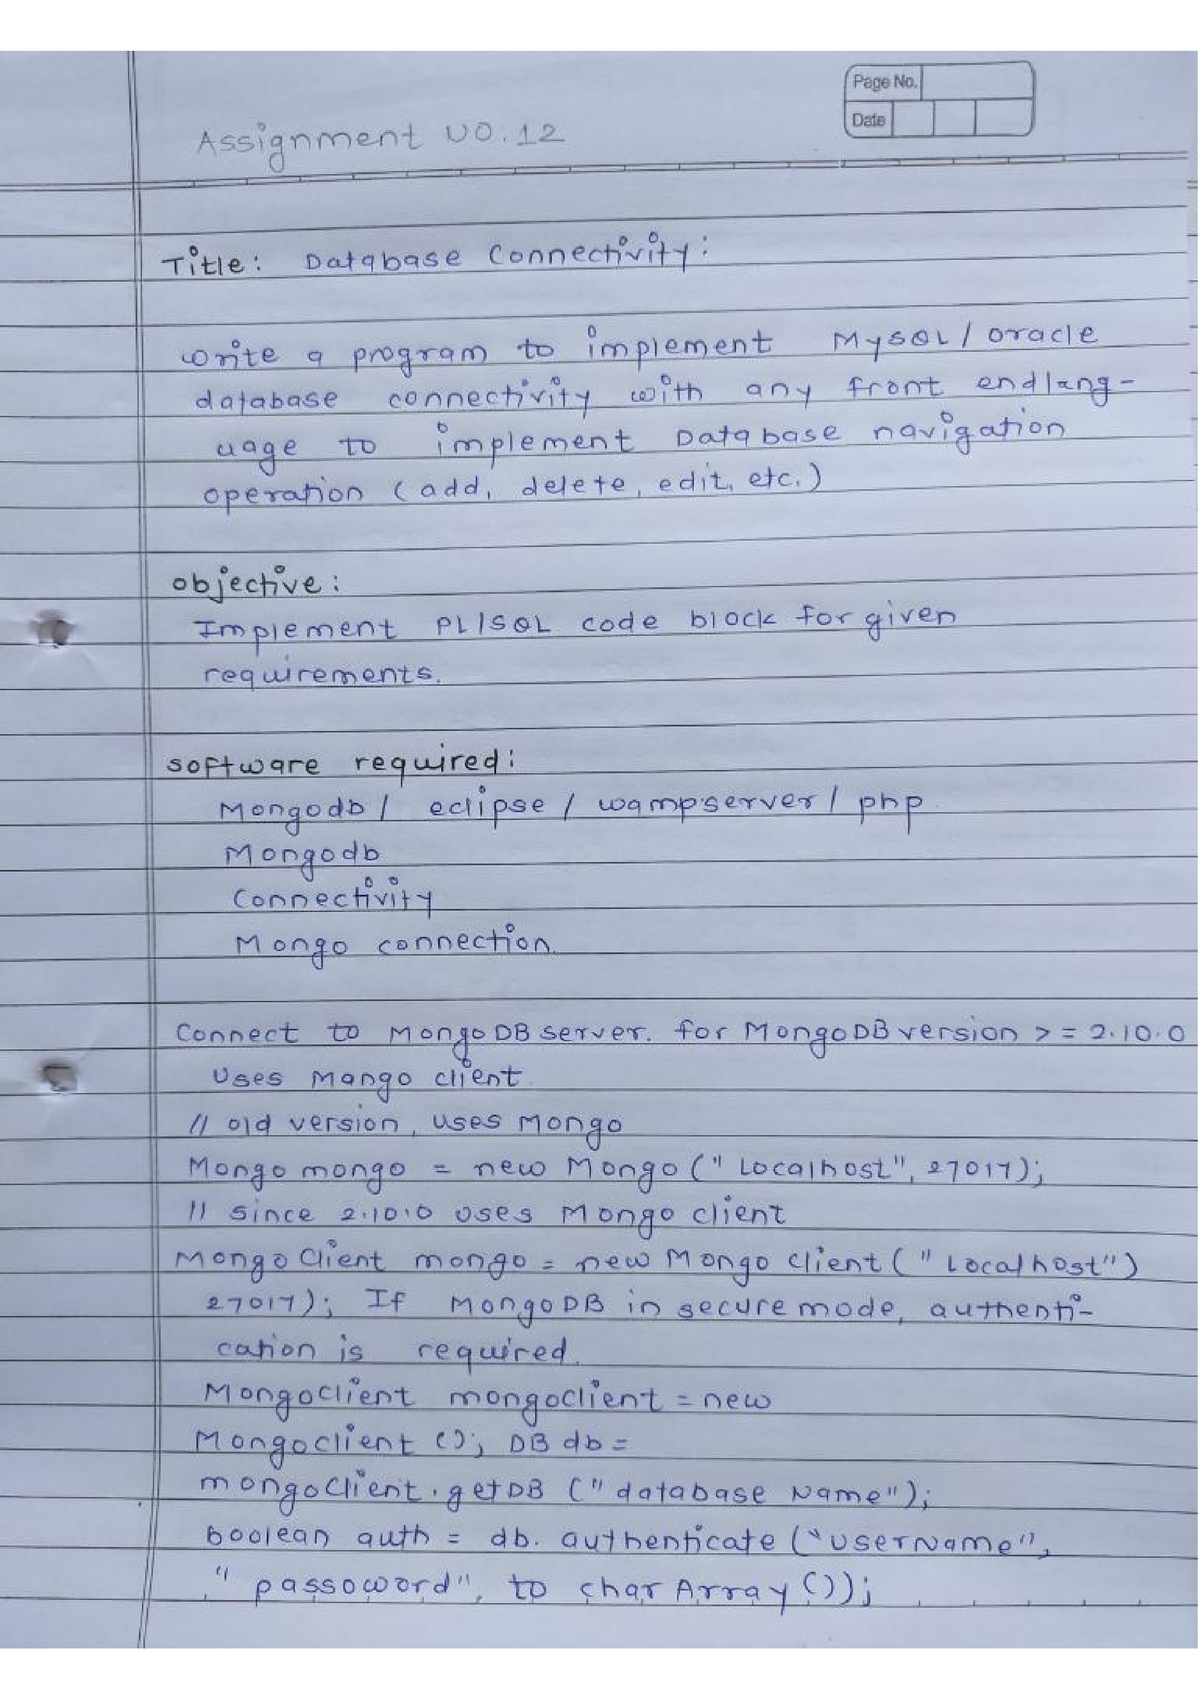 Page No.
Date
Assignment NO.12
Title: Database Connectivity:
write a program to implement MySQL / oracle
database connectivity with any front end lang-
uage to implement Database navigation
operation (add, delete, edit, etc.)
objective:
Implement PL/SQL code block for given
requirements.
software required:
Mongodb / eclipse / wampserver / php
Mongodb
Connectivity
Mongo connection.
Connect to MongoDB server. for MongoDB version >= 2.10.0
Uses Mango client.
// old version, uses Mongo
Mongo mongo = new Mongo ("Localhost", 27017);
// since 2.10.0 uses Mongo client
Mongo Client mongo = new Mongo client ("Localhost")
27017); If MongoDB in secure mode, authenti-
cation is required.
Mongoclient mongoclient = new
Mongoclient (); DB db =
mongoclient.getDB ("database Name");
boolean auth = db. authenticate ("userName",
"passoword", to char Array ());